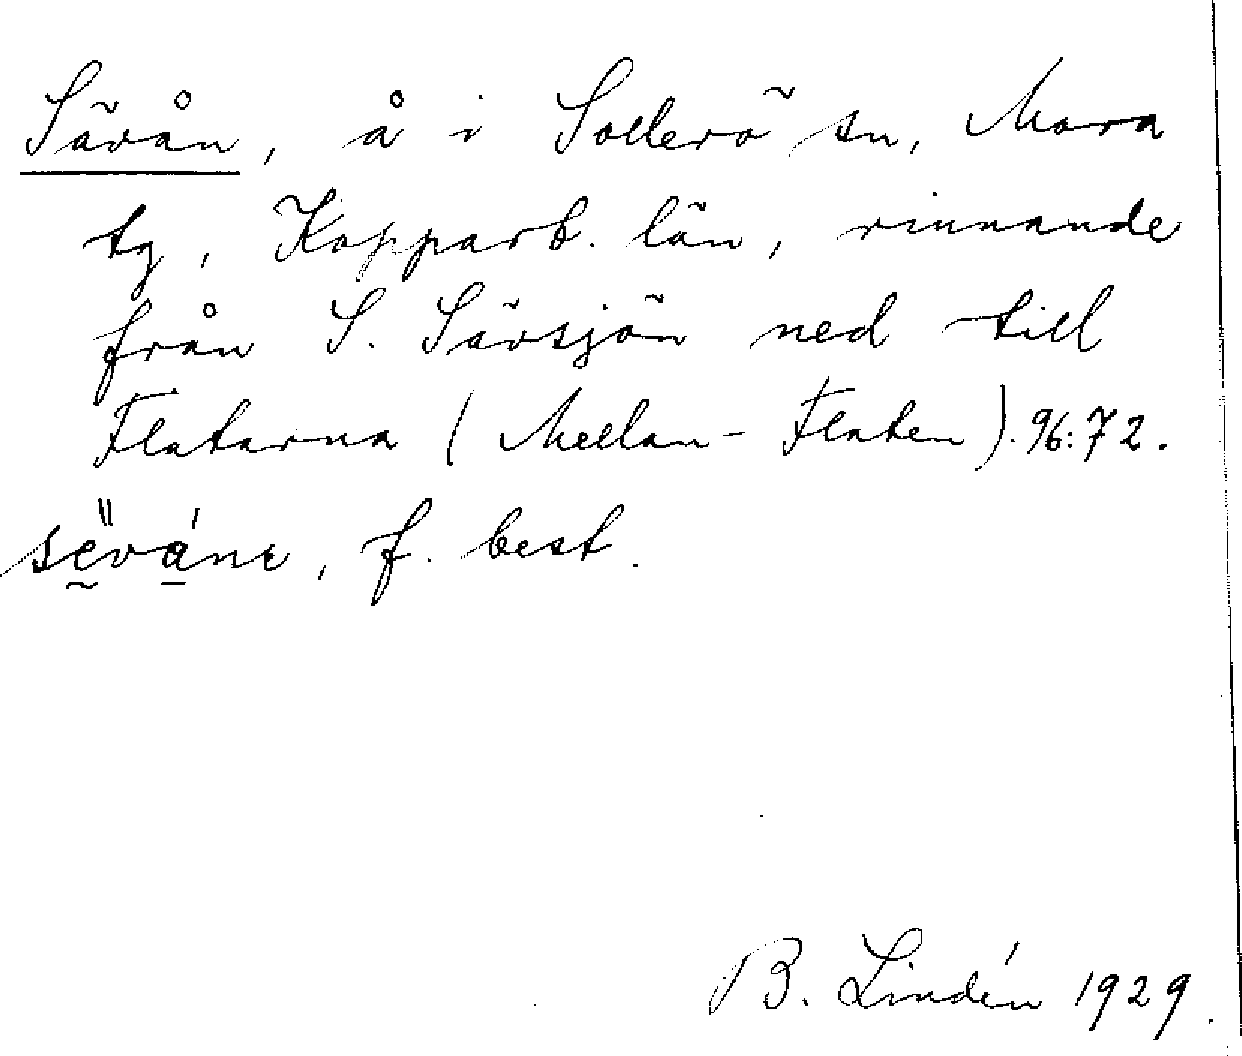 Sävån, å i Sollerö sn, Mora
tg, Kopparb. län, rinnande
från S. Sävsjön ned till
Flatarna (Mellan-Flaten). 96:72.
, f. best.
B. Lindén 1929.